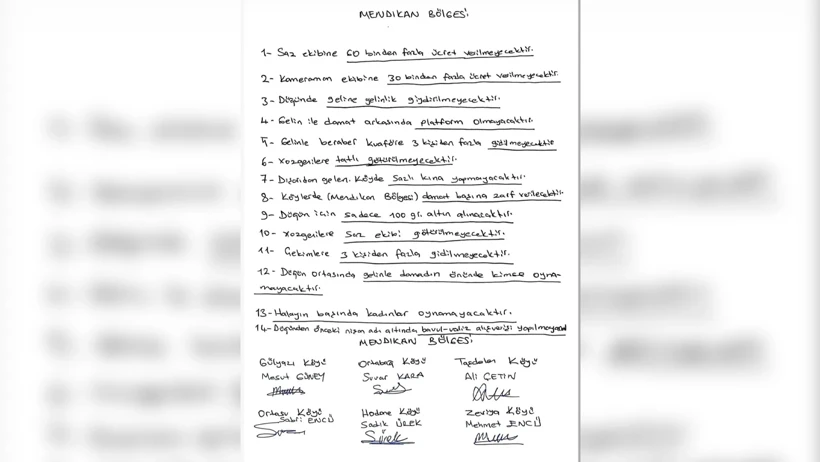 MENDIKAN BÖLGESİ
1- Saz ekibine 60 binden fazla ücret verilmeyecektir.
2- Kameraman ekibine 30 binden fazla ücret verilmeyecektir.
3- Düğünde geline gelinlik giydirilmeyecektir.
4- Gelin ile damat arkasında platform olmayacaktır.
5- Gelinle beraber kuaföre 3 kişiden fazla gidilmeyecektir
6- Xozgenilere tatlı götürülmeyecektir.
7- Dışarıdan gelen. Köyde Sazlı kına yapmayacaktır.
8- Köylerde (Mendikan Bölgesi) damat başına zarf verilecektir.
9- Düğün için sadece 100 gr. altın alınacaktır.
10- Xozgenilere Saz ekibi götürülmeyecektir.
11- Çekimlere 3 kişiden fazla gidilmeyecektir.
12- Düğün ortasında gelinle damadın önünde kimse oyna-
mayacaktır.
13- Halayın başında kadınlar oynamayacaktır.
14- Düğünden önceki nişan adı altında bavul-valiz alışverişi yapılmayacak
MENDIKAN BÖLGESİ
Gülyazı Köyü Ortabağ Köyü Taşdelen Köyü
Mesut GÜNEY Suvar KARA Ali ÇETİN
Ortasu Köyü Hodane Köyü Zeviya Köyü
Sabri ENCÜ Sadık ÜREK Mehmet ENCÜ